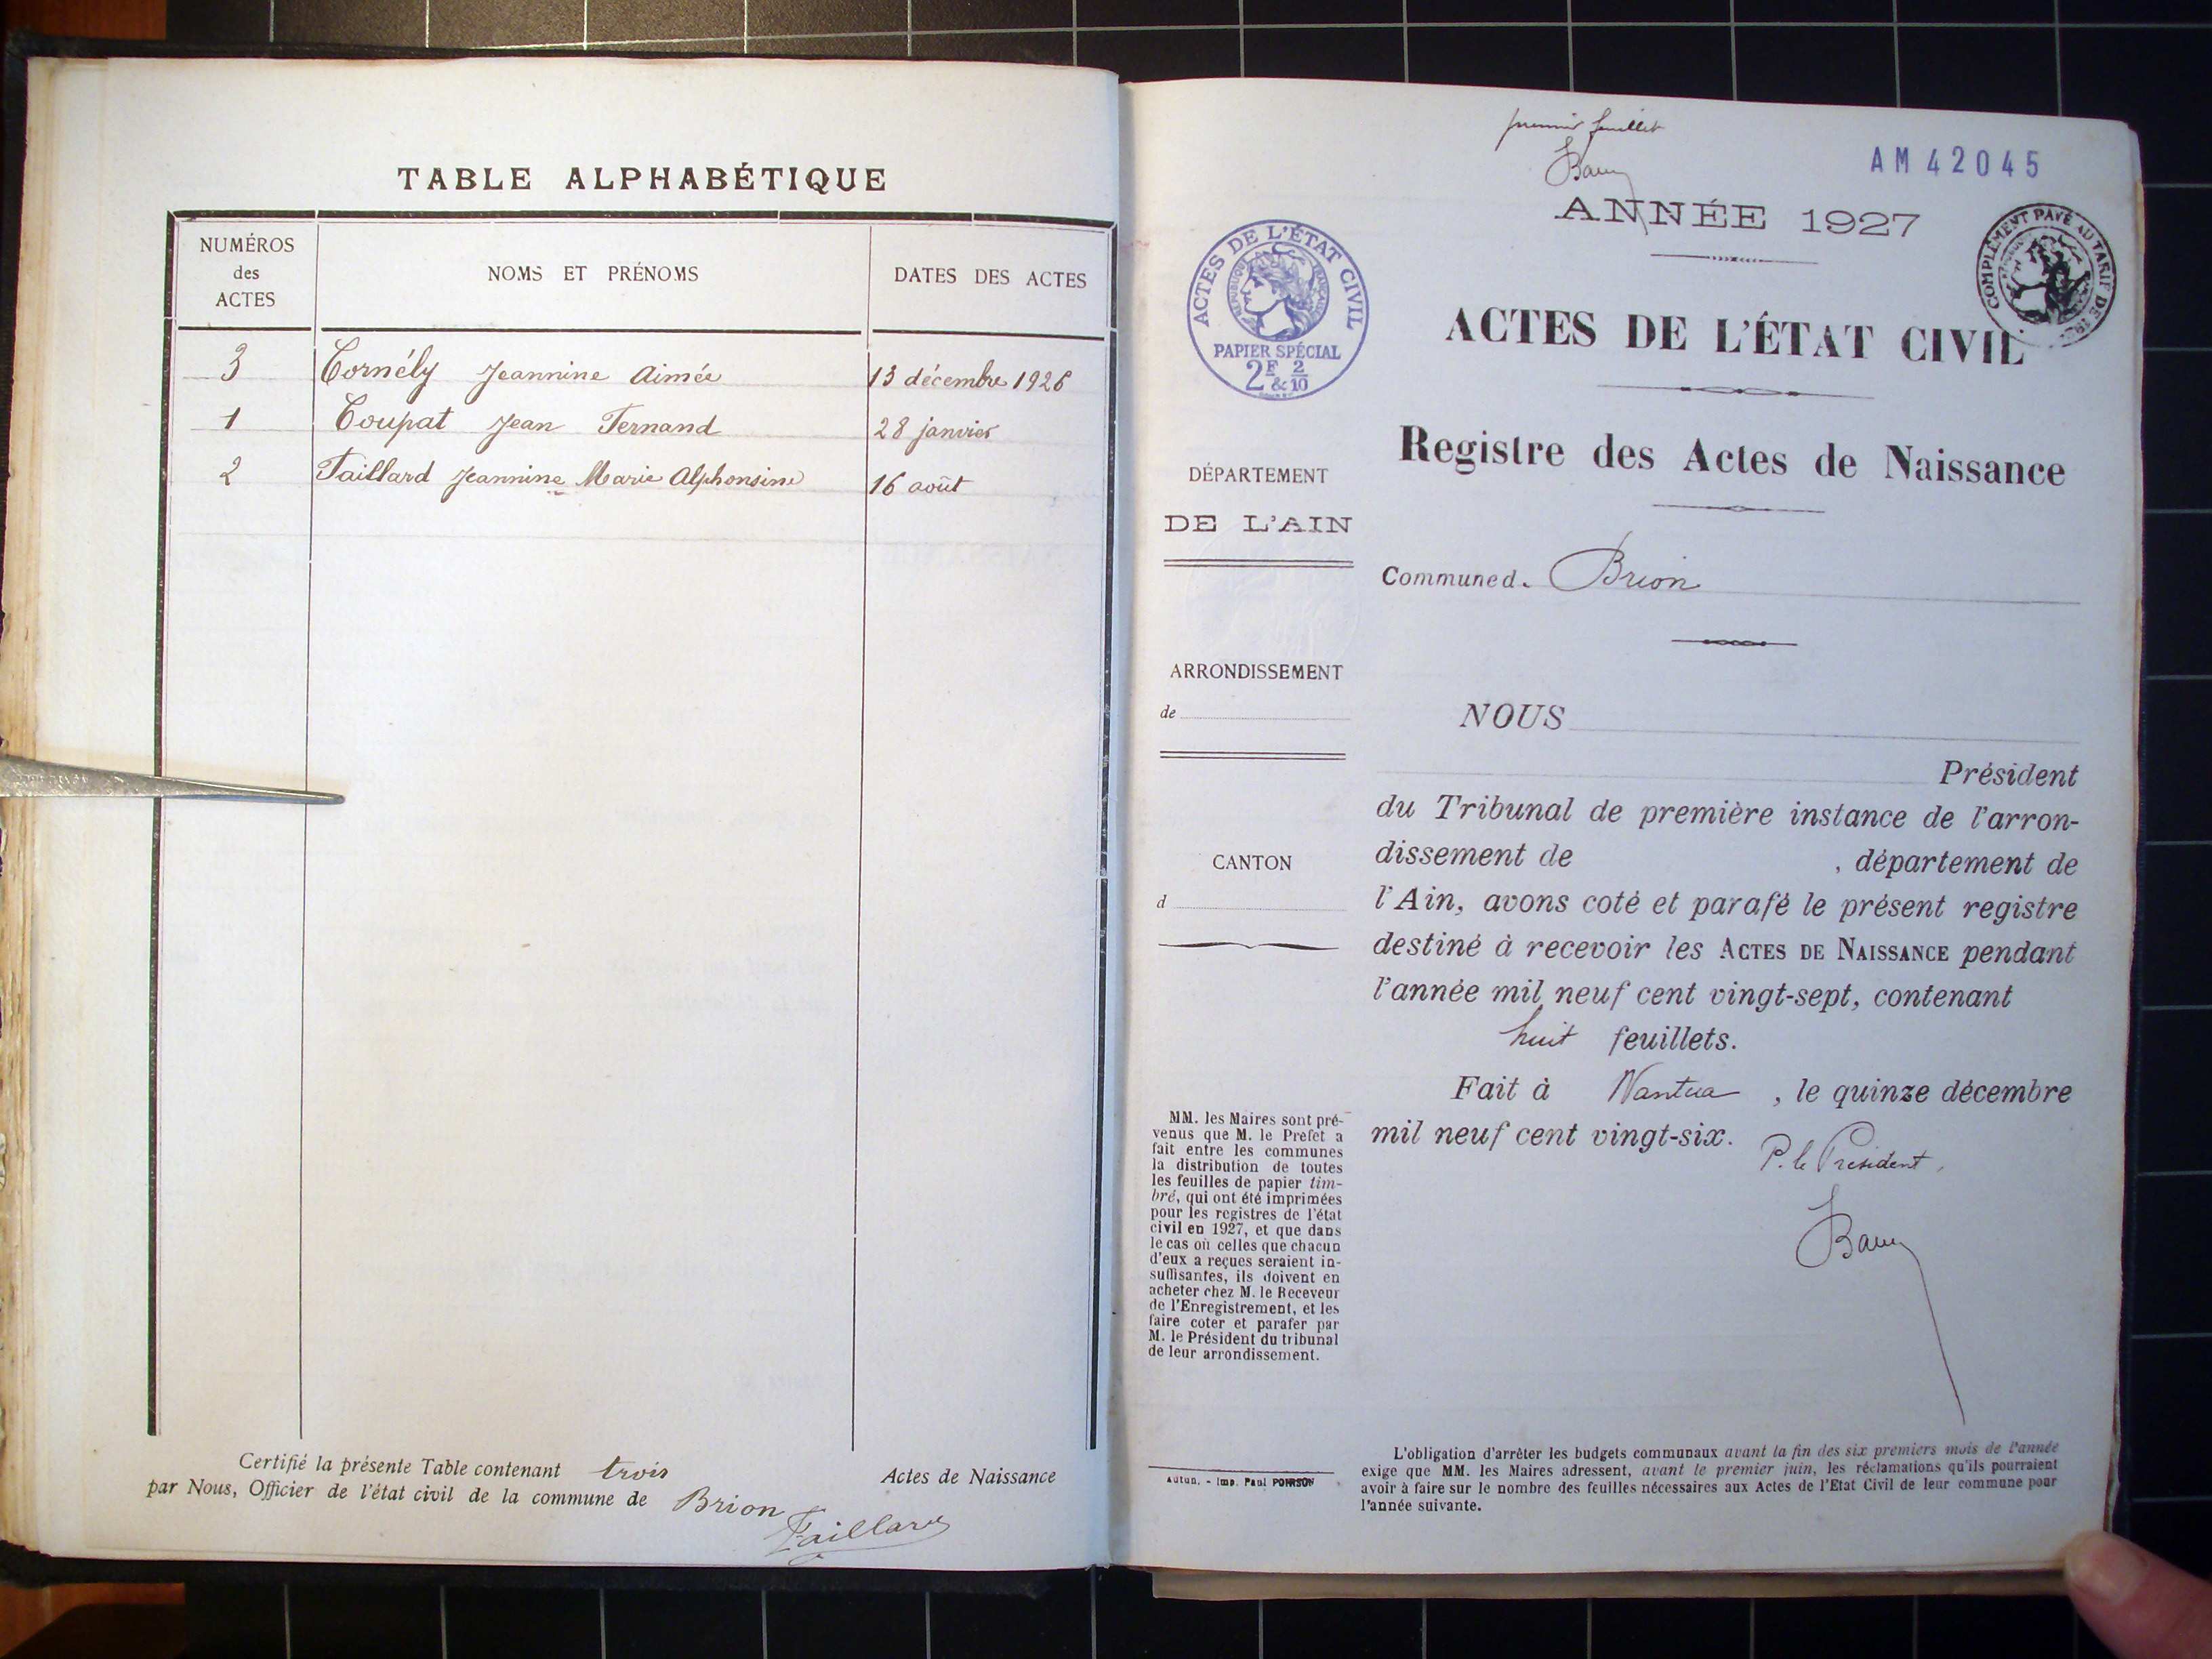 TABLE ALPHABÉTIQUE
NUMÉROS
des
ACTES
NOMS ET PRÉNOMS
DATES DES ACTES
3 Cornély Jeannine Aimée 13 décembre 1926
1 Coupat Jean Fernand 28 janvier
2 Taillard Jeannine Marie Alphonsine 16 août
Certifié la présente Table contenant trois Actes de Naissance
par Nous, Officier de l'état civil de la commune de Brion
Taillard
premier feuillet
AM 42045
ANNÉE 1927
ACTES DE L'ÉTAT CIVIL
RÉPUBLIQUE FRANÇAISE
PAPIER SPÉCIAL
2F 2
& 10
COMPLÉMENT PAYÉ AU TARIF DE
ACTES DE L'ÉTAT CIVIL
Registre des Actes de Naissance
DÉPARTEMENT
DE L'AIN
Commune d. Brion
ARRONDISSEMENT
de
CANTON
d
NOUS
Président
du Tribunal de première instance de l'arron-
dissement de , département de
l'Ain, avons coté et parafé le présent registre
destiné à recevoir les ACTES DE NAISSANCE pendant
l'année mil neuf cent vingt-sept, contenant
huit feuillets.
Fait à Nantua , le quinze décembre
mil neuf cent vingt-six.
P. le Président,
MM. les Maires sont pré-
venus que M. le Préfet a
fait entre les communes
la distribution de toutes
les feuilles de papier tim-
bré, qui ont été imprimées
pour les registres de l'état
civil en 1927, et que dans
le cas où celles que chacun
d'eux a reçues seraient in-
suffisantes, ils doivent en
acheter chez M. le Receveur
de l'Enregistrement, et les
faire coter et parafer par
M. le Président du tribunal
de leur arrondissement.
Autun. - Imp. Paul
L'obligation d'arrêter les budgets communaux avant la fin des six premiers mois de l'année
exige que MM. les Maires adressent, avant le premier juin, les réclamations qu'ils pourraient
avoir à faire sur le nombre des feuilles nécessaires aux Actes de l'Etat Civil de leur commune pour
l'année suivante.